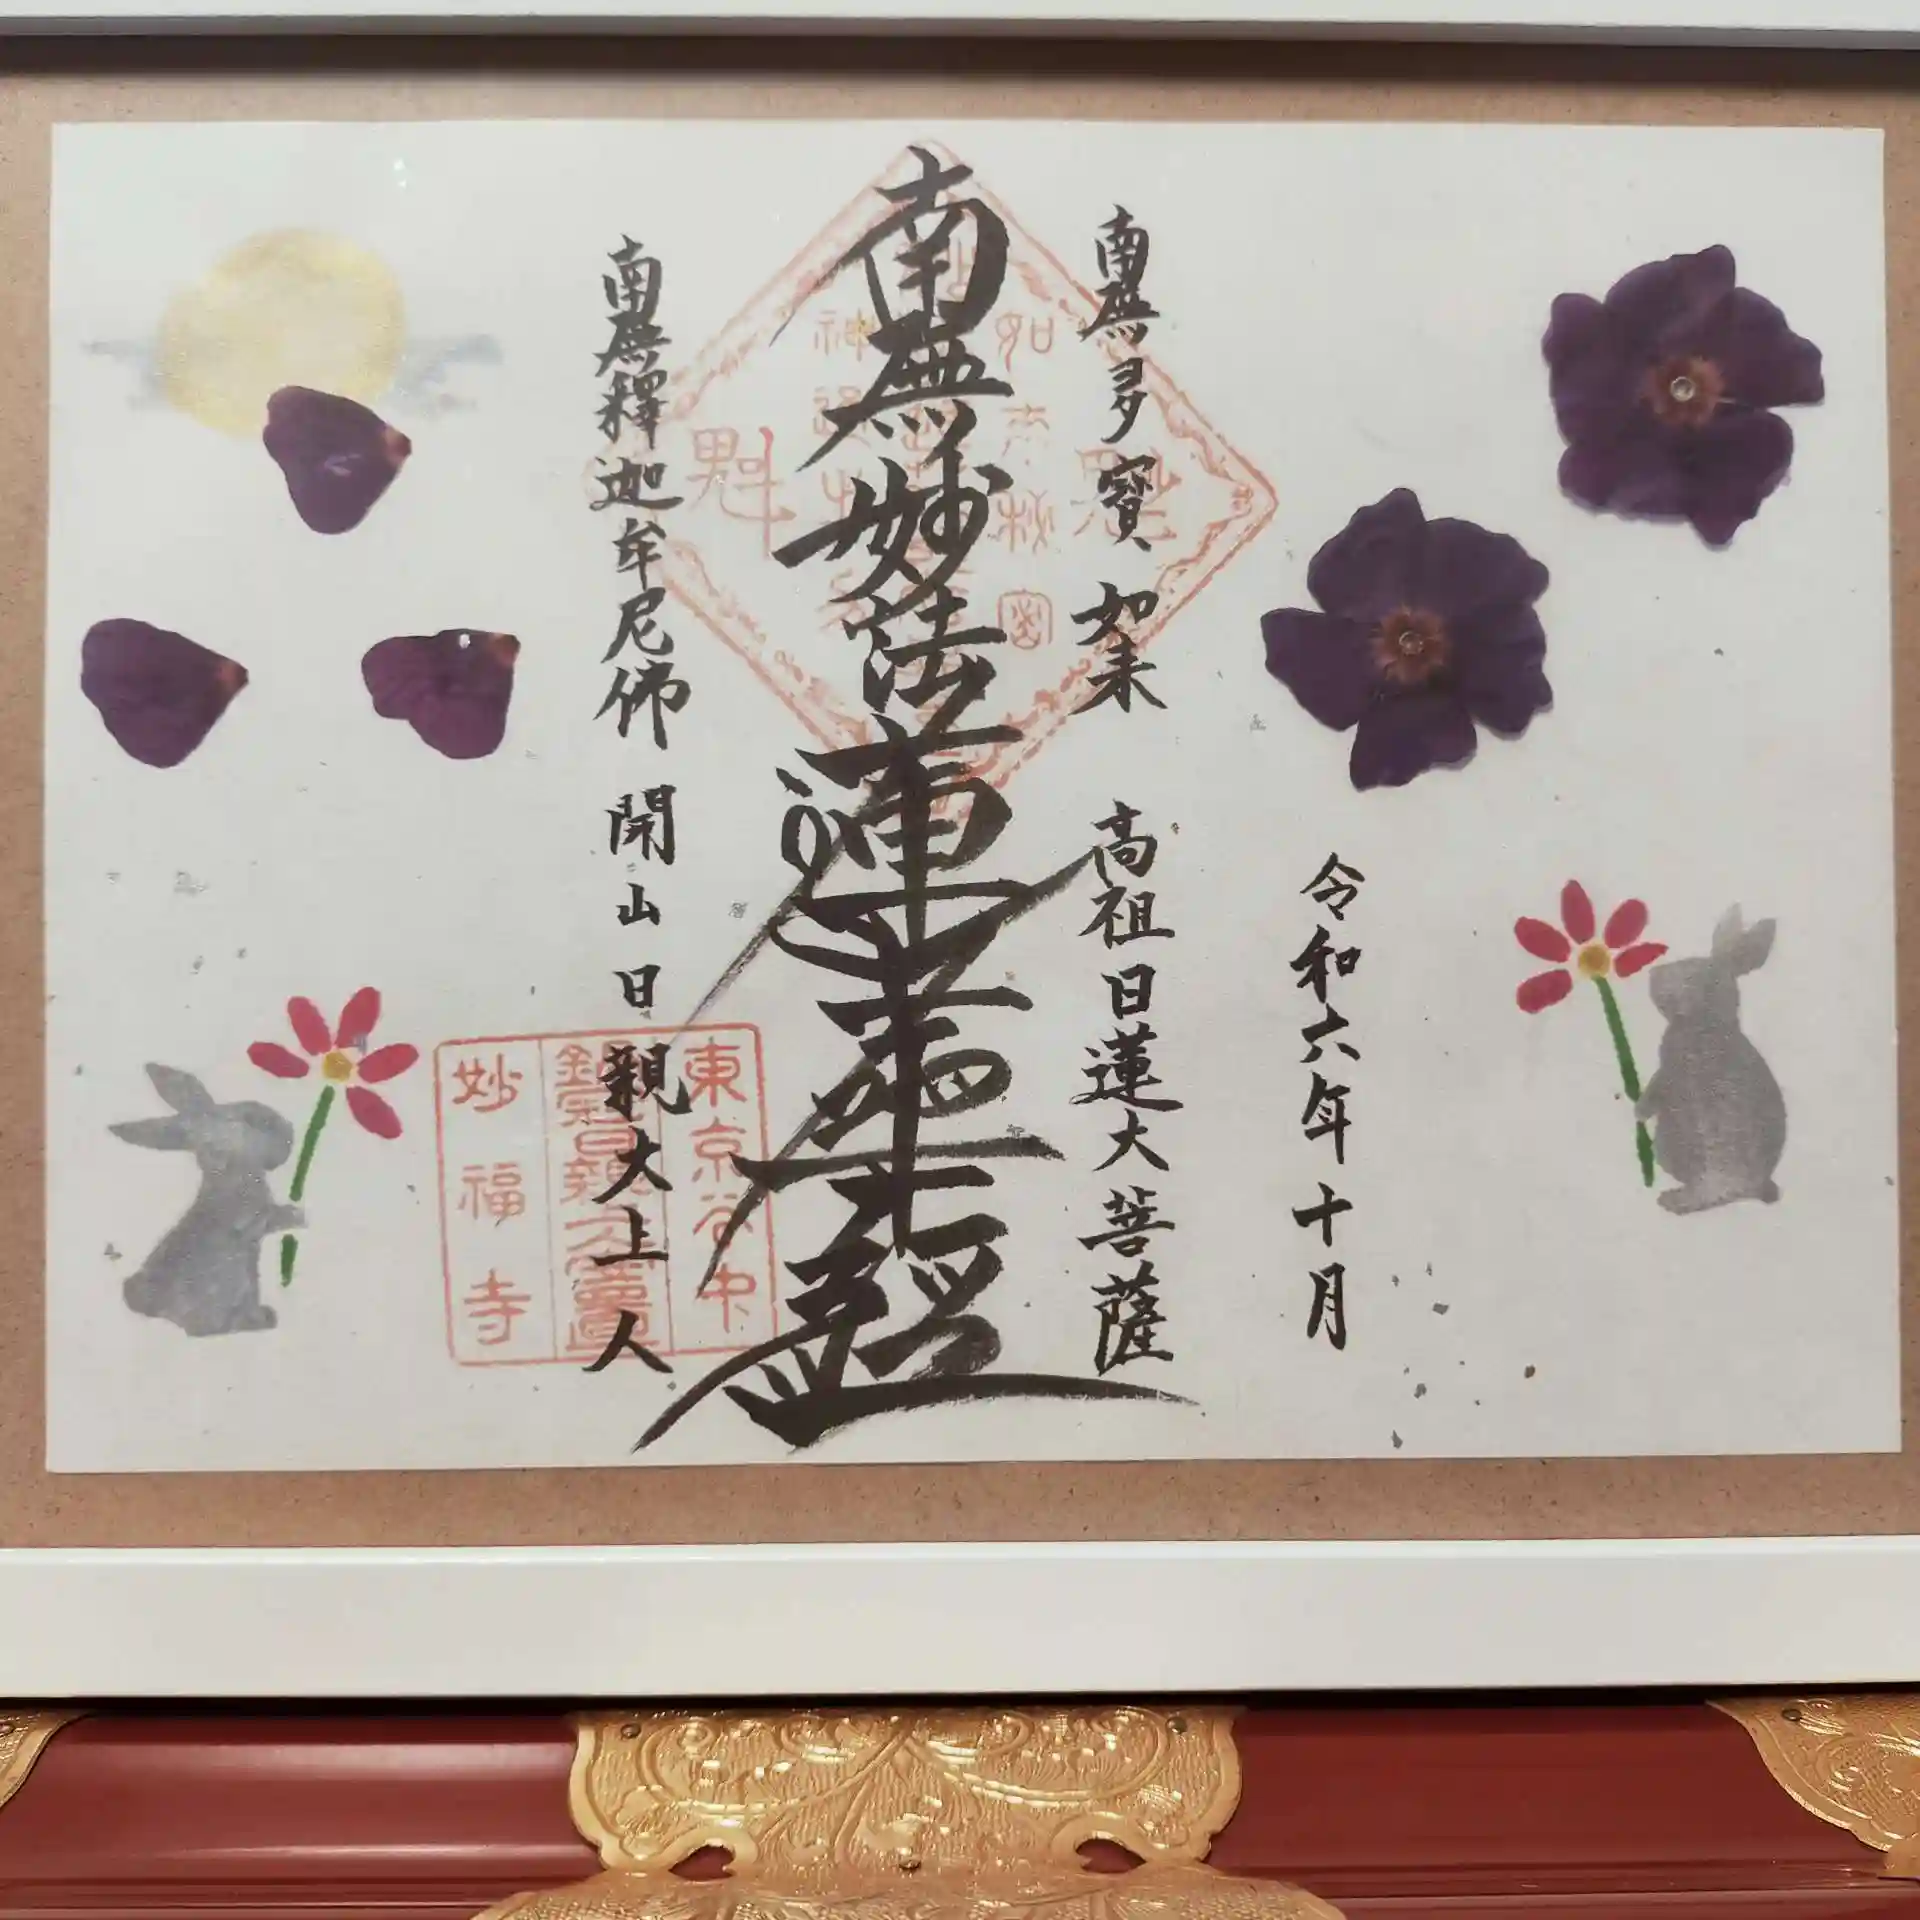 令和六年十月
南無多寳如来 高祖日蓮大菩薩
南無妙法蓮華経
南無釋迦牟尼佛 開山日親大上人
魁
如来秘密
神通之力
東京谷中
鍋冠日親大
妙福寺